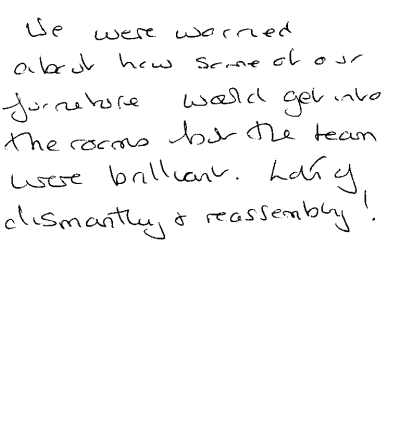 We were worried
about how some of our
furniture would get into
the rooms but the team
were brilliant. Lots of
dismantling & reassembly!